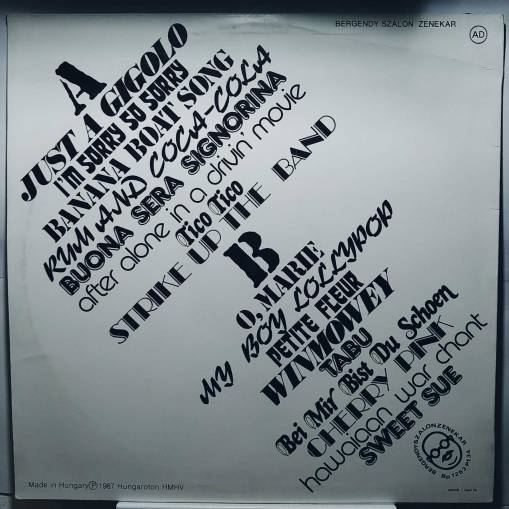 BERGENDY SZALON ZENEKAR
AD
A
JUST A GIGOLO
I'M SORRY SO SORRY
BANANA BOAT SONG
RUM AND COCA-COLA
BUONA SERA SIGNORINA
after alone in a drivin' movie
Tico Tico
STRIKE UP THE BAND
B
O, MARIE
MY BOY LOLLYPOP
PETITE FLEUR
WINMOWEY
TABU
Bei Mir Bist Du Schoen
CHERRY PINK
hawaiian war chant
SWEET SUE
BERGENDYSZALONZENEKAR
Made in Hungary Ⓟ 1987 Hungaroton HMHV